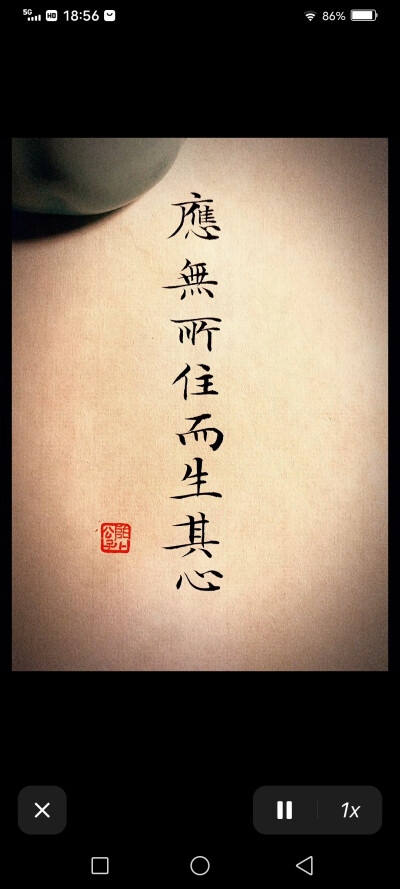 5G HD 18:56 86%
應無所住而生其心
1x